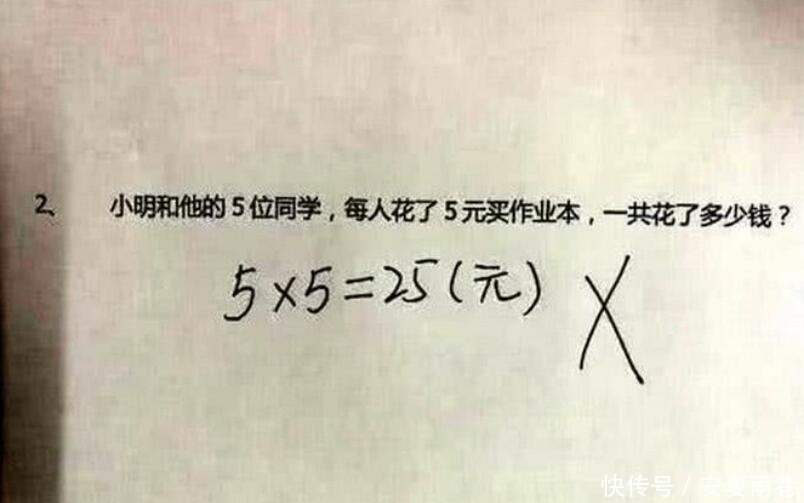 2、 小明和他的5位同学，每人花了5元买作业本，一共花了多少钱？
5×5=25(元) ×
快传号/安爱丽春